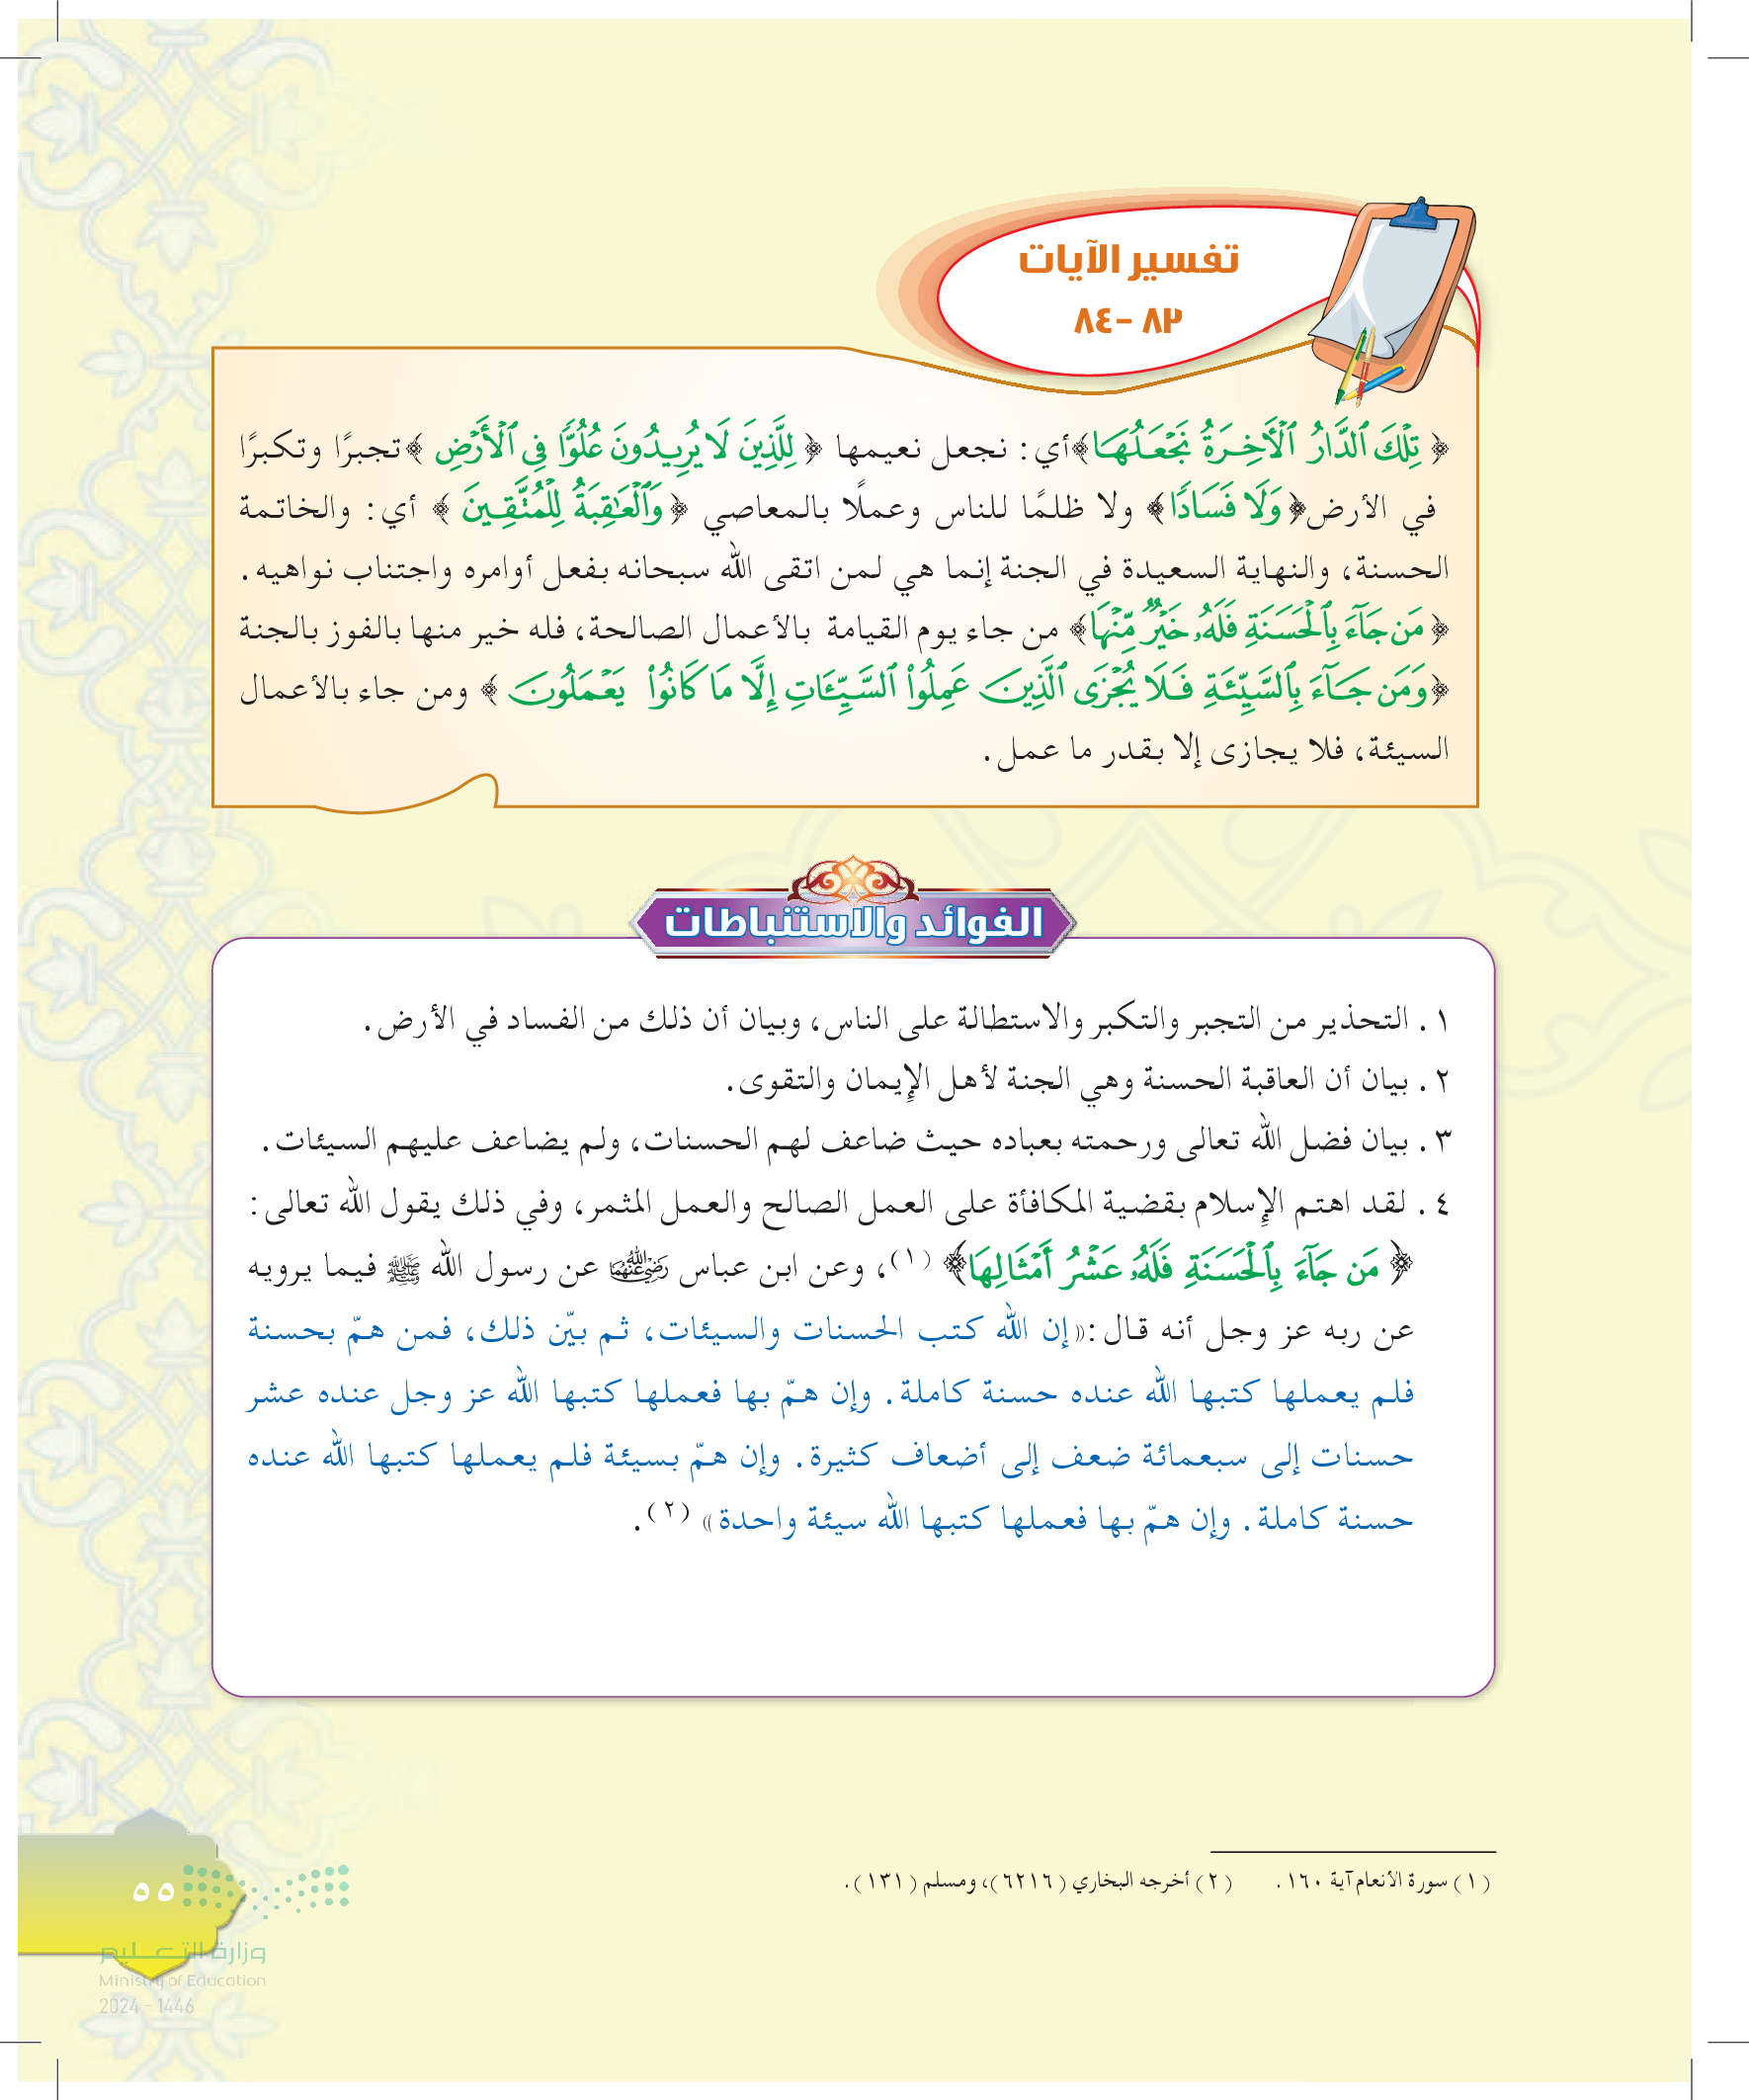 تفسير الآيات
٨٢ -٨٤
﴿ تِلْكَ ٱلدَّارُ ٱلْأَخِرَةُ نَجْعَلُهَا﴾أي: نجعل نعيمها ﴿ لِلَّذِينَ لَا يُرِيدُونَ عُلُوًّا فِي ٱلْأَرْضِ ﴾تجبرًا وتكبرًا
في الأرض﴿ وَلَا فَسَادًا﴾ ولا ظلمًا للناس وعملًا بالمعاصي ﴿ وَٱلْعَٰقِبَةُ لِلْمُتَّقِينَ ﴾ أي: والخاتمة
الحسنة، والنهاية السعيدة في الجنة إنما هي لمن اتقى الله سبحانه بفعل أوامره واجتناب نواهيه.
﴿ مَن جَآءَ بِٱلْحَسَنَةِ فَلَهُۥ خَيْرٌ مِّنْهَا﴾ من جاء يوم القيامة بالأعمال الصالحة، فله خير منها بالفوز بالجنة
﴿وَمَن جَآءَ بِٱلسَّيِّئَةِ فَلَا يُجْزَى ٱلَّذِينَ عَمِلُوا۟ ٱلسَّيِّـَٔاتِ إِلَّا مَا كَانُوا۟ يَعْمَلُونَ ﴾ ومن جاء بالأعمال
السيئة، فلا يجازى إلا بقدر ما عمل.
الفوائد والاستنباطات
١. التحذير من التجبر والتكبر والاستطالة على الناس، وبيان أن ذلك من الفساد في الأرض.
٢. بيان أن العاقبة الحسنة وهي الجنة لأهل الإيمان والتقوى.
٣. بيان فضل الله تعالى ورحمته بعباده حيث ضاعف لهم الحسنات، ولم يضاعف عليهم السيئات.
٤. لقد اهتم الإسلام بقضية المكافأة على العمل الصالح والعمل المثمر، وفي ذلك يقول الله تعالى:
﴿ مَن جَآءَ بِٱلْحَسَنَةِ فَلَهُۥ عَشْرُ أَمْثَالِهَا﴾ (١)، وعن ابن عباس رضي الله عنهما عن رسول الله ﷺ فيما يرويه
عن ربه عز وجل أنه قال:«إن الله كتب الحسنات والسيئات، ثم بيّن ذلك، فمن همّ بحسنة
فلم يعملها كتبها الله عنده حسنة كاملة. وإن همّ بها فعملها كتبها الله عز وجل عنده عشر
حسنات إلى سبعمائة ضعف إلى أضعاف كثيرة. وإن همّ بسيئة فلم يعملها كتبها الله عنده
حسنة كاملة. وإن همّ بها فعملها كتبها الله سيئة واحدة» (٢).
(١) سورة الأنعام آية ١٦٠. (٢) أخرجه البخاري (٦٢١٦)، ومسلم (١٣١).
٥٥
وزارة التعليم
Ministry of Education
2024 - 1446